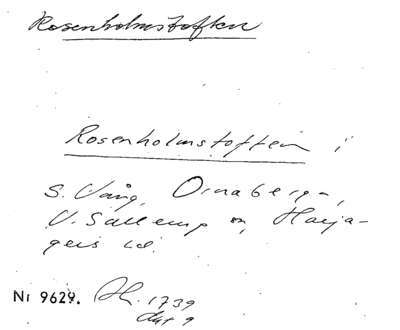 Rosenholmstoften
Rosenholmstoften i
S. Vång, Ornaberga,
V. Sallerup sn, Harja-
gers hd.
Ni 9629. Ah. 1739
Akt 9